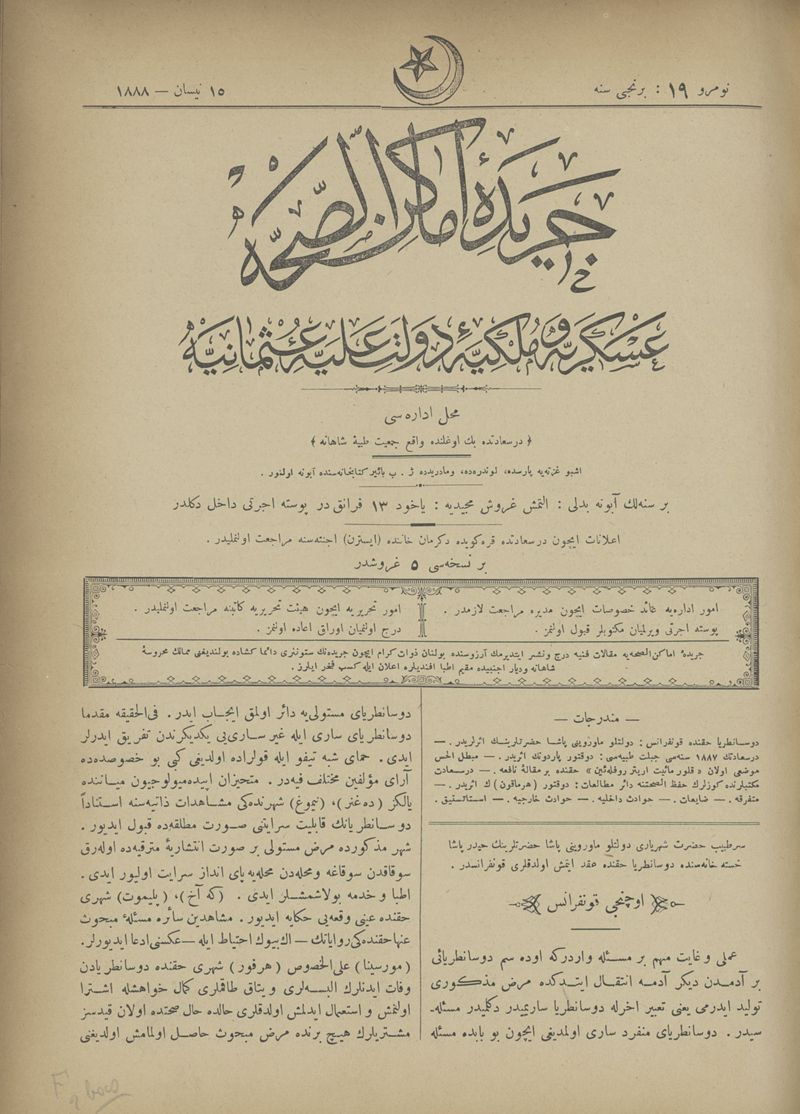 نومرو ١٩ : برنجی سنه
١٥ نیسان — ١٨٨٨
جریدهٔ اماکن الصحّه
عسکریه و ملکیهٔ دولت علیهٔ عثمانیه
محل اداره سی
﴿ درسعادتده بك اوغلنده واقع جمعیت طبیهٔ شاهانه ﴾
اشبو غزته‌یه پارسده، لوندره‌ده، ومادریدده ژ . ب بائیر کتابخانه‌سنده آبونه اولنور .
بر سنه‌لك آبونه بدلی : التمش غروش مجیدیه : یاخود ١٣ فرانق در پوسته اجرتی داخل دکلدر
اعلانات ایچون درسعادتده قره‌کویده دکرمان خاننده (ایسترن) اجنته‌سنه مراجعت اولنملیدر .
بر نسخه‌سی ٥ غروشدر
امور اداره‌یه عائد خصوصات ایچون مدیره مراجعت لازمدر .
پوسته اجرتی ویرلمیان مکتوبلر قبول اولنمز .
امور تحریریه ایچون هیئت تحریریه کاتبنه مراجعت اولنملیدر .
درج اولنمیان اوراق اعاده اولنمز .
جریدهٔ اماکن‌الصحه‌یه مقالات فنیه درج ونشر ایتدیرمك آرزوسنده بولنان ذوات کرام ایچون جریده‌نك ستونلری دائما کشاده بولندیغنی ممالك محروسهٔ
شاهانه ودیار اجنبیده مقیم اطبا افندیلره اعلان ایله کسب فخر ایلرز .
— مندرجات —
دوسانطریا حقنده قونفرانس : دولتلو ماوروینی پاشا حضرتلرینك اثرلریدر . —
درسعادتك ١٨٨٧ سنه‌سی جهت طبیه‌سی : دوقتور پاردونك اثریدر . — مبطل الحس
موضعی اولان « قلور مائیت اریتر روفله‌ئین » حقنده بر مقالهٔ نافعه . — درسعادت
مکتبلرنده کوزلرك حفظ الصحتنه دائر مطالعات : دوقتور (هرماقون) ك اثریدر . —
متفرقه . — ضایعات . — حوادث داخلیه . — حوادث خارجیه . — استاتستیق .
سرطبیب حضرت شهریاری دولتلو ماوروینی پاشا حضرتلرینك حیدر پاشا
خسته خانه‌سنده دوسانطریا حقنده عقد ایتمش اولدقلری قونفرانسدر .
اوچنجی قونفرانس
عملی و غایت مهم بر مسئله واردرکه اوده سم دوسانطریائی
بر آدمدن دیکر آدمه انتقال ایتدکده مرض مذکوری
تولید ایدرمی یعنی تعبیر اخرله دوسانطریا ساریمیدر دکلمیدر مسئله‌-
سیدر . دوسانطریای منفرد ساری اولمدیغی ایچون بو بابده مسئله
دوسانطریای مستولی‌یه دائر اولمق ایجاب ایدر . فی‌الحقیقه مقدما
دوسانطریای ساری ایله غیر ساری‌یی یکدیکرندن تفریق ایدرلر
ایدی . حمای شبه تیفو ایله قولراده اولدیغی کبی بو خصوصده‌ده
آرای مؤلفین مختلف فیه‌در . متحیزان اپیده‌میولوجیون میاننده
یالکز (ده‌غنر)، (نیوغ) شهرنده‌کی مشاهدات ذاتیه‌سنه استناداً
دوسانطریانك قابلیت سرایتنی صورت مطلقه‌ده قبول ایدیور .
شهر مذکورده مرض مستولی بر صورت انتشاریهٔ مترقیه‌ده اوله‌رق
سوقاقدن سوقاغه ومحله‌دن محله‌یه‌پای انداز سرایت اولیور ایدی .
اطبا و خدمه بولاشمشلر ایدی . (که آخ)، (پلیموت) شهری
حقنده عینی وقعه‌یی حکایه ایدیور. مشاهدین سائره مسئلهٔ مبحوث
عنها حقنده‌کی روایاتك — اك بیوك احتیاط ایله — عکسنی ادعا ایدیورلر.
(مورسینا) علی‌الخصوص (هرفور) شهری حقنده دوسانطریادن
وفات ایدنلرك البسه‌لری و یتاق طاقملری کمال خواهشله اشترا
اولنمش و استعمال ایدلمش اولدقلری حالده حال صحتده اولان قیدسز
مشتریلرك هیچ برنده مرض مبحوث حاصل اولمامش اولدیغنی